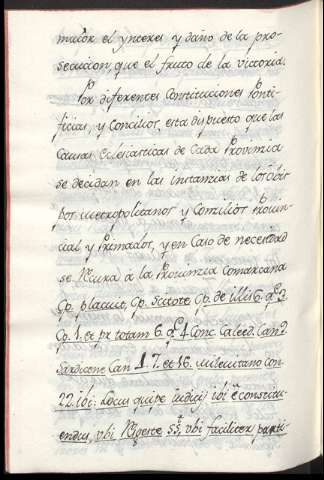 maior el ynteres y daño de la pro-
secucion, que el fruto de la victoria.
Por diferentes Constituciones Ponti-
ficias, y Concilios, esta dispuesto que las
Causas Eclesiasticas de Cada Provincia
se decidan en las instancias de los obis
pos metropolitanos y Concilios Provin-
cial y Primados, y en Caso de necesidad
se recurra a la Provinzia Comarcana
Cp. placuit, Cp. de illis 6. q. 3.
Cp. 1. et pr totam 6. q. 4. Conc. Calced. Can. 9
Sardicone Can 4. 7. et 16. milevitano con
22. ibi: Locus quipe iudicij ibi e constitu-
endus, vbi Negote ss, vbi faciliter parti-